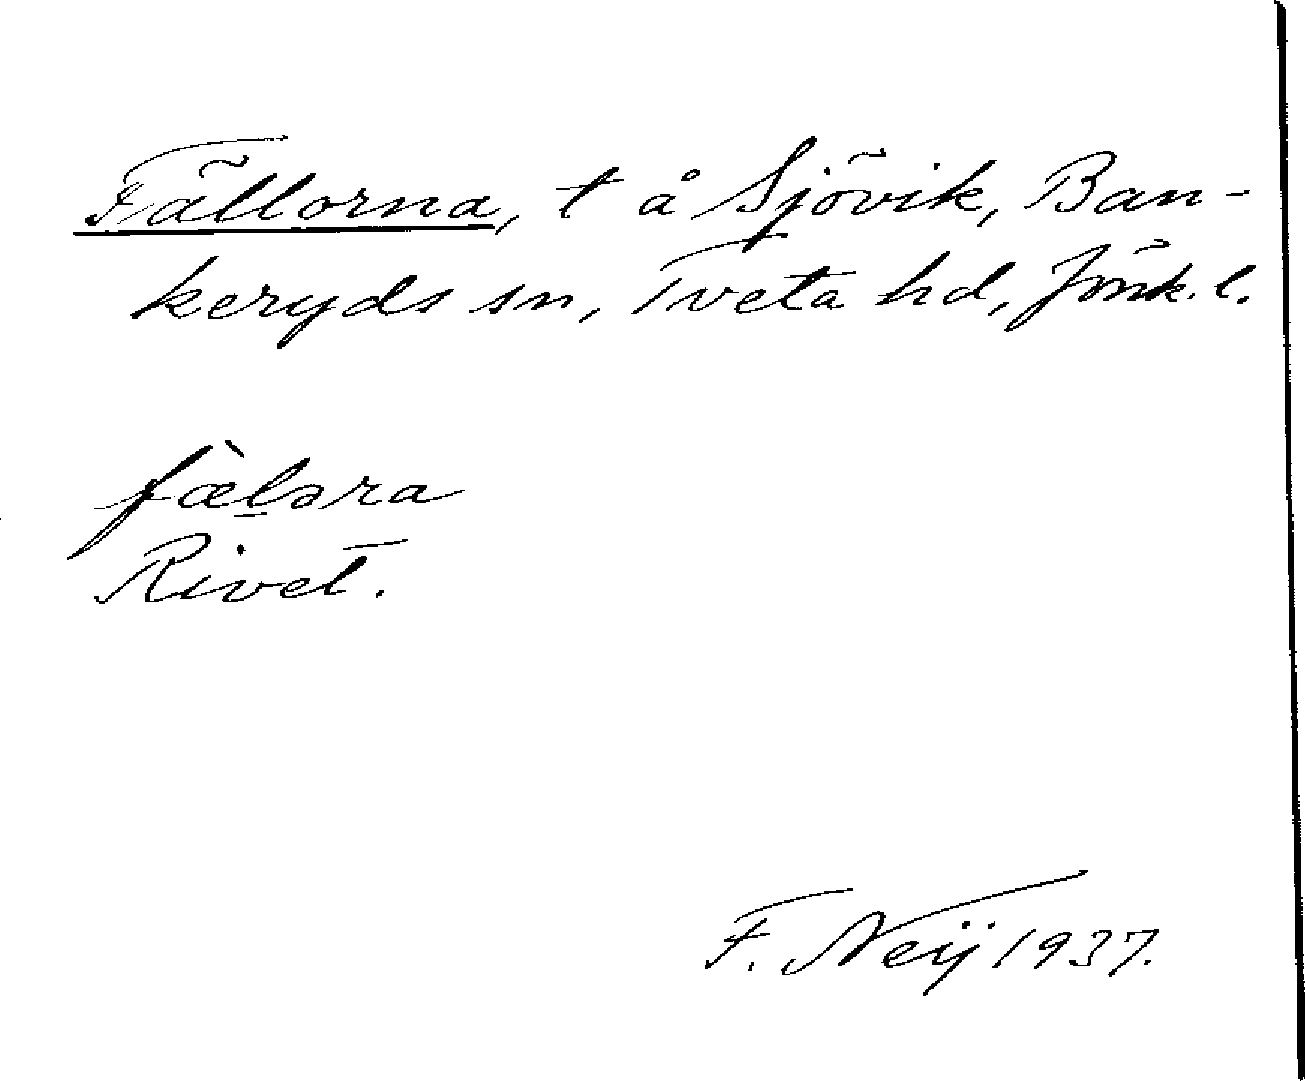 Fällorna, t å Sjövik, Ban-
keryds sn, Tveta hd, Jönk. l.
fæ̀l̠ɔra
Rivet.
F. Neij 1937.